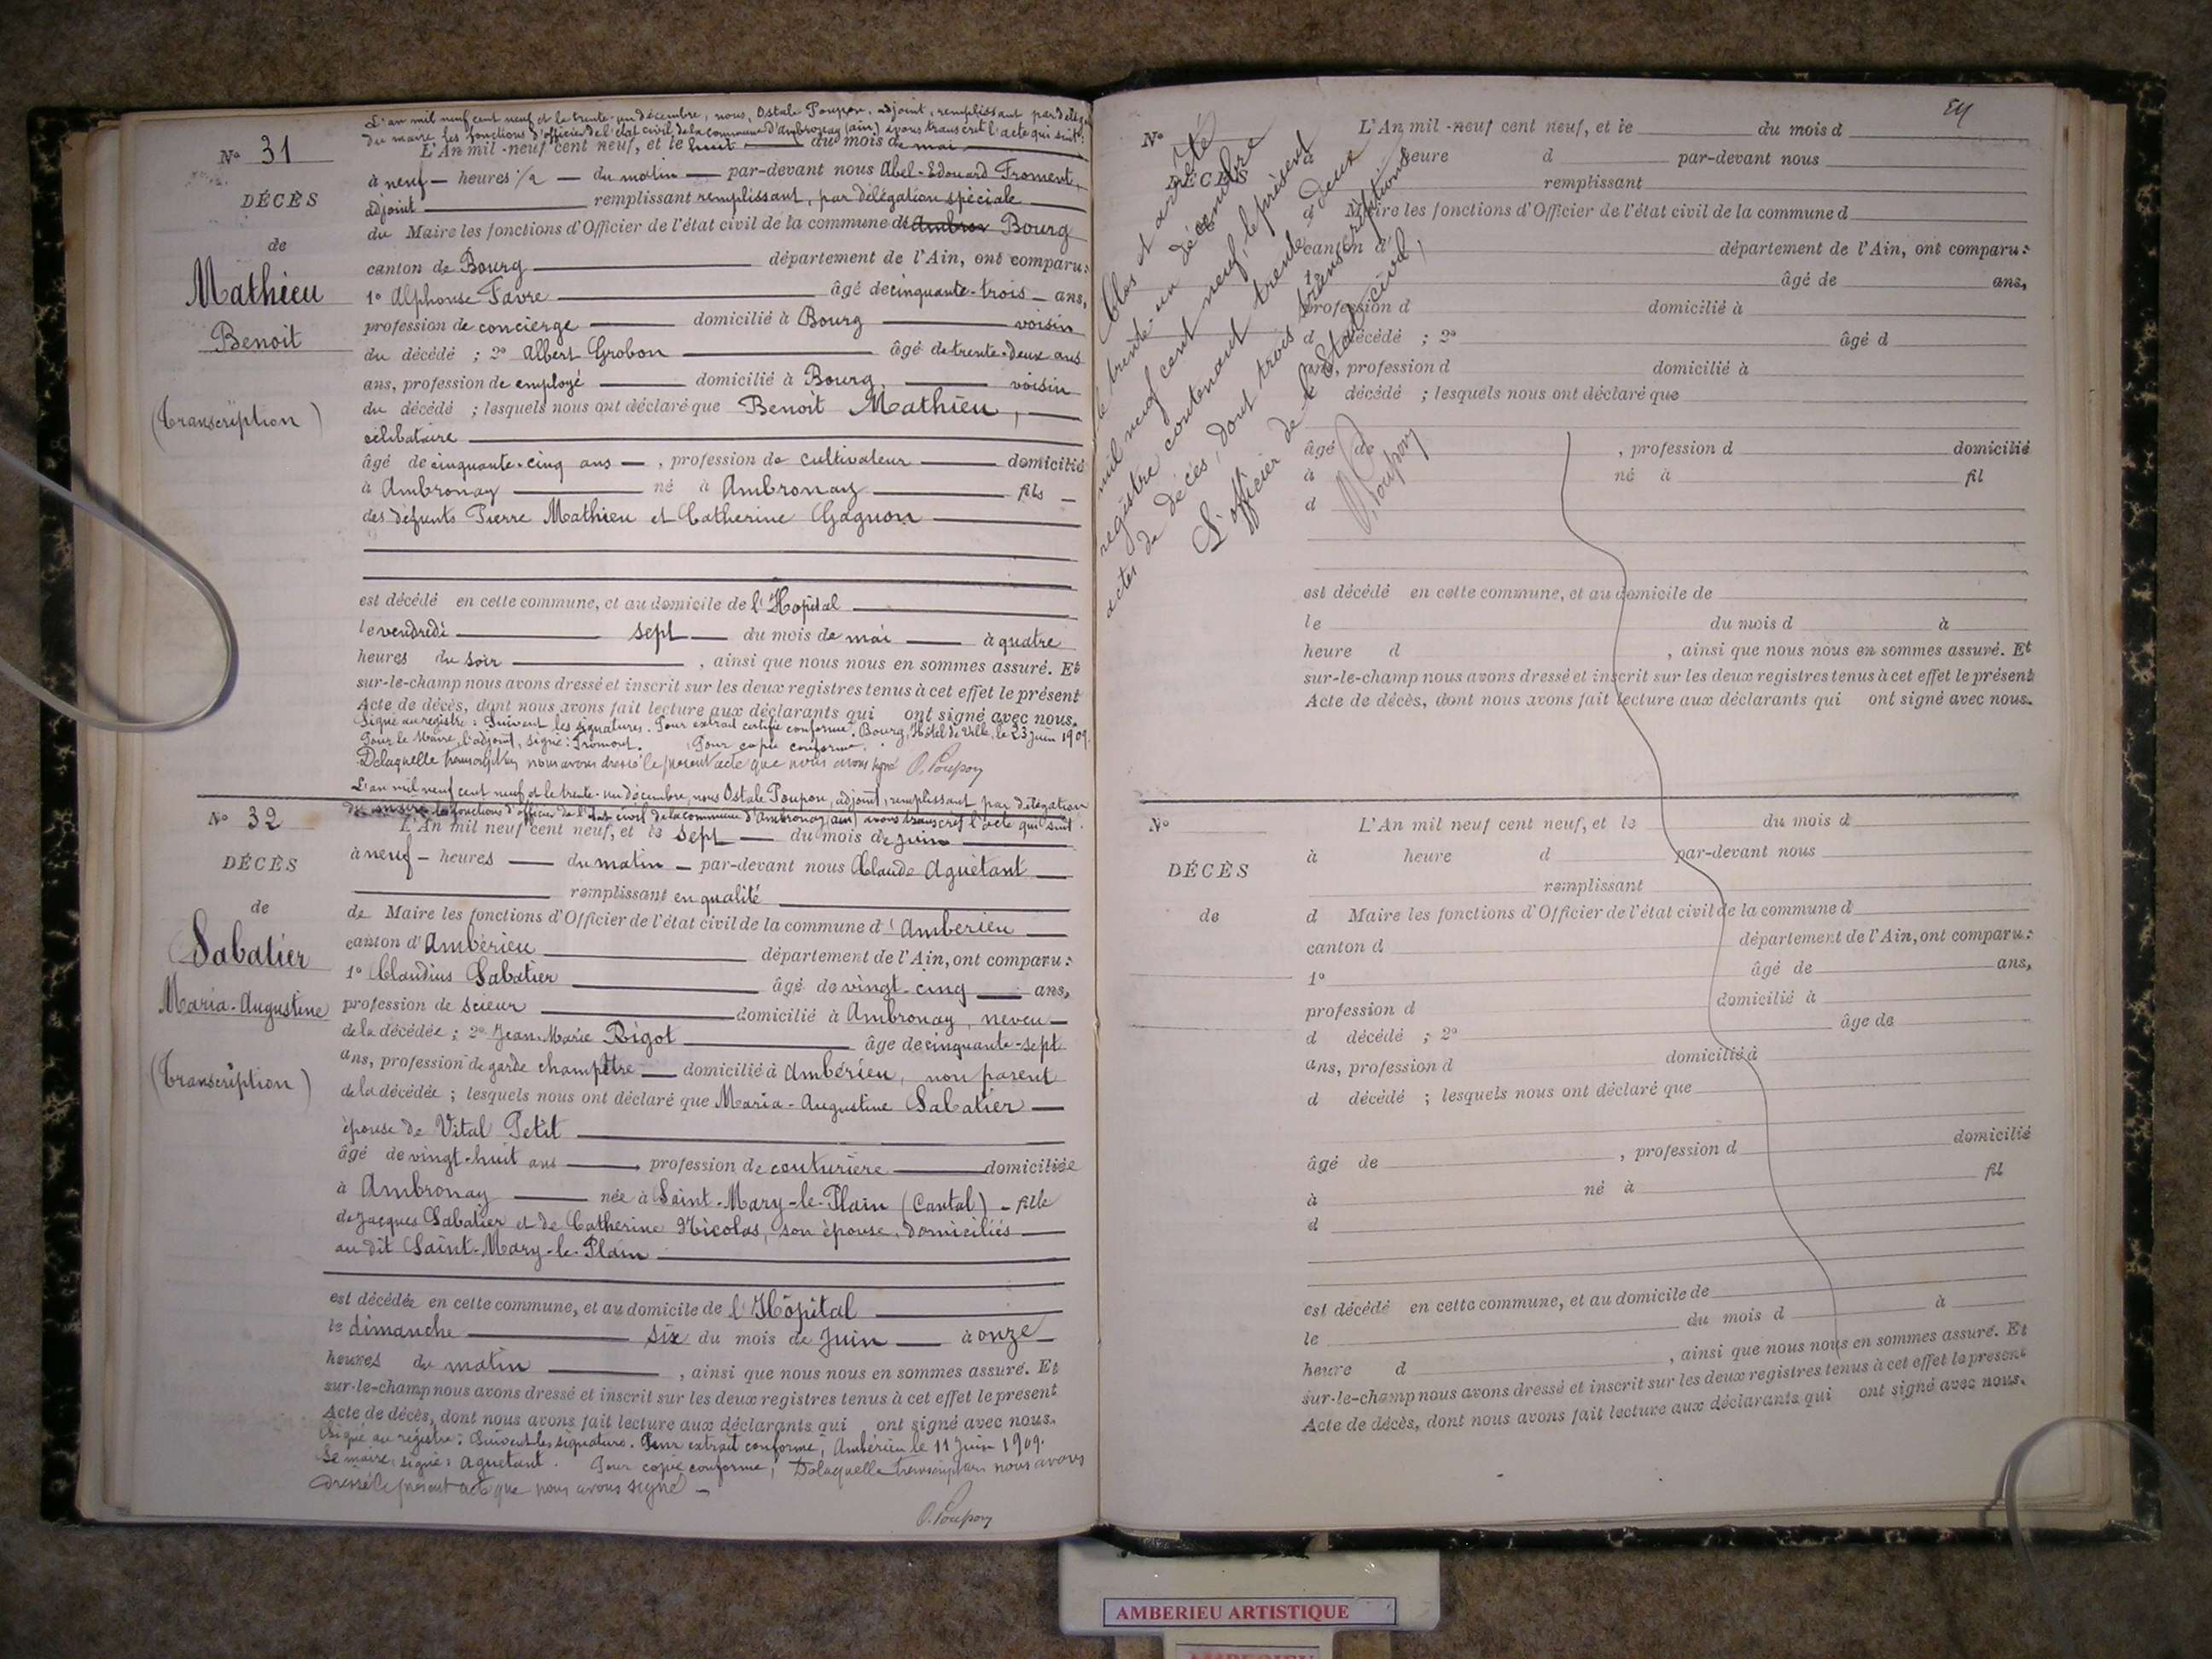 L'an mil neuf cent neuf et le trente-un décembre, nous, Ostale Poupon, adjoint, remplissant par délég
du maire les fonctions d'officier de l'état civil de la commune d'Ambronay (ain) avons transcrit l'acte qui suit:
N° 31
L'An mil -neuf cent neuf, et le huit du mois de mai
à neuf heures 1/2 du matin par-devant nous Abel-Edouard Froment,
DÉCÈS
adjoint remplissant remplissant, par délégation spéciale
du Maire les fonctions d'Officier de l'état civil de la commune de Ambron Bourg
de
canton de Bourg département de l'Ain, ont comparu:
Mathieu
1° Alphonse Favre âgé de cinquante-trois ans,
profession de concierge domicilié à Bourg voisin
Benoit
du décédé ; 2° Albert Grobon âgé de trente-deux ans
ans, profession de employé domicilié à Bourg, voisin
du décédé ; lesquels nous ont déclaré que Benoit Mathieu,
(Transcription)
célibataire
âgé de cinquante-cinq ans , profession de cultivateur domicilié
à Ambronay né à Ambronay fils
des défunts Pierre Mathieu et Catherine Gagnon
est décédé en cette commune, et au domicile de l'Hopital
le vendredi sept du mois de mai à quatre
heures du soir , ainsi que nous nous en sommes assuré. Et
sur-le-champ nous avons dressé et inscrit sur les deux registres tenus à cet effet le présent
Acte de décès, dont nous avons fait lecture aux déclarants qui ont signé avec nous.
Signé au registre : Suivent les signatures. Pour extrait certifié conforme. Bourg, Hôtel de Ville, le 23 juin 1909.
Pour le Maire, l'adjoint, signé: Froment. Pour copie conforme.
De laquelle transcription nous avons dressé le présent acte que nous avons signé O. Poupon
L'an mil neuf cent neuf et le trente-un décembre, nous Ostale Poupon, adjoint, remplissant par délégation
du maire les fonctions d'officier de l'état civil de la commune d'Ambronay (ain) avons transcrit l'acte qui suit.
N° 32
L'An mil neuf cent neuf, et le sept du mois de juin
à neuf heures du matin par-devant nous Claude Aguétant
DÉCÈS
remplissant en qualité
de
de Maire les fonctions d'Officier de l'état civil de la commune d'Ambérieu
canton d'Ambérieu département de l'Ain, ont comparu:
Sabatier
1° Claudius Sabatier âgé de vingt-cinq ans,
Maria-Augustine
profession de scieur domicilié à Ambronay, neveu
de la décédée ; 2° Jean-Marie Rigot âge de cinquante-sept
ans, profession de garde champêtre domicilié à Ambérieu, non parent
(Transcription)
de la décédée ; lesquels nous ont déclaré que Maria-Augustine Sabatier
épouse de Vital Petit
âgé de vingt-huit ans , profession de couturière domiciliée
à Ambronay née à Saint-Mary-le-Plain (Cantal) - fille
de Jacques Sabatier et de Catherine Nicolas, son épouse, domiciliés
au dit Saint-Mary-le-Plain
est décédée en cette commune, et au domicile de l'Hôpital
le dimanche six du mois de Juin à onze
heures du matin , ainsi que nous nous en sommes assuré. Et
sur-le-champ nous avons dressé et inscrit sur les deux registres tenus à cet effet le présent
Acte de décès, dont nous avons fait lecture aux déclarants qui ont signé avec nous.
Signé au registre : Suivent les signatures. Pour extrait conforme, Ambérieu le 11 Juin 1909.
Le maire, signé : Aguetant. Pour copie conforme, De laquelle transcription nous avons
dressé le présent acte que nous avons signé
O. Poupon
Clos et arrêté
le trente-un décembre
mil neuf cent neuf, le présent
registre contenant trente-deux
actes de décès, dont trois transcriptions
L'officier de l'Etat civil,
O. Poupon
N° L'An mil -neuf cent neuf, et le du mois d
à heure d par-devant nous
DÉCÈS
remplissant
d Maire les fonctions d'Officier de l'état civil de la commune d
canton d département de l'Ain, ont comparu:
1° âgé de ans,
profession d domicilié à
d décédé ; 2° âgé d
ans, profession d domicilié à
d décédé ; lesquels nous ont déclaré que
âgé de , profession d domicilié
à né à fil
d
est décédé en cette commune, et au domicile de
le du mois d à
heure d , ainsi que nous nous en sommes assuré. Et
sur-le-champ nous avons dressé et inscrit sur les deux registres tenus à cet effet le présent
Acte de décès, dont nous avons fait lecture aux déclarants qui ont signé avec nous.
N° L'An mil neuf cent neuf, et le du mois d
à heure d par-devant nous
DÉCÈS
remplissant
de d Maire les fonctions d'Officier de l'état civil de la commune d
canton d département de l'Ain, ont comparu:
1° âgé de ans,
profession d domicilié à
d décédé ; 2° âge de
ans, profession d domicilié à
d décédé ; lesquels nous ont déclaré que
âgé de , profession d domicilié
à né à fil
d
est décédé en cette commune, et au domicile de
le du mois d à
heure d , ainsi que nous nous en sommes assuré. Et
sur-le-champ nous avons dressé et inscrit sur les deux registres tenus à cet effet le présent
Acte de décès, dont nous avons fait lecture aux déclarants qui ont signé avec nous.
AMBERIEU ARTISTIQUE
AMBERIEU